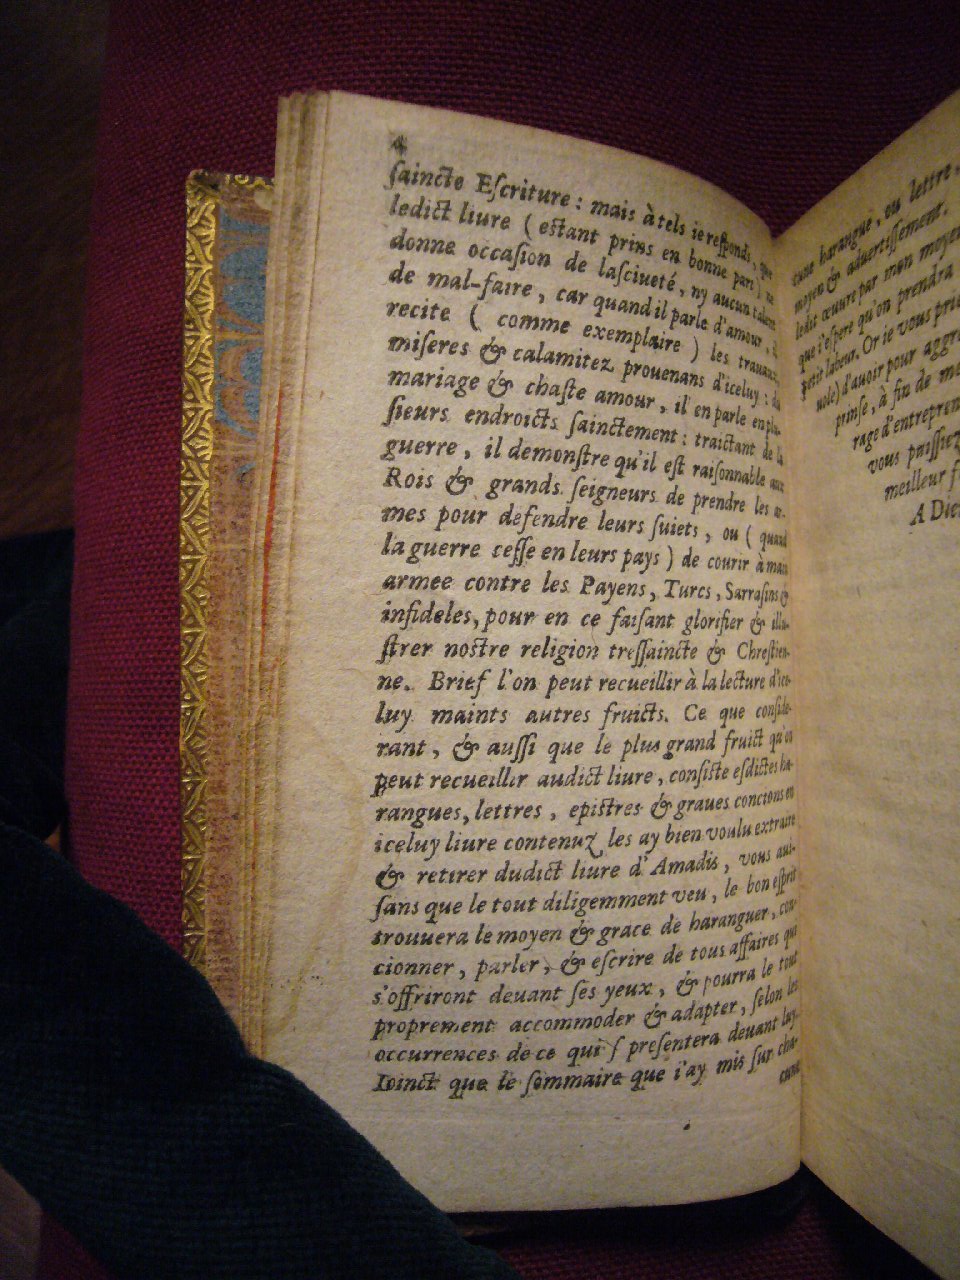 4
ſaincte Eſcriture : mais à tels ie reſponds, que
ledict liure ( eſtant prins en bonne part ) ne
donne occaſion de laſciueté, ny aucun talent
de mal-faire, car quand il parle d'amour, il
recite ( comme exemplaire ) les trauaux,
miſeres & calamitez prouenans d'iceluy : du
mariage & chaſte amour, il en parle en plu-
ſieurs endroicts ſainctement : traictant de la
guerre, il demonſtre qu'il eſt raiſonnable aux
Rois & grands ſeigneurs de prendre les ar-
mes pour defendre leurs ſuiets, ou ( quand
la guerre ceſſe en leurs pays ) de courir à main
armee contre les Payens, Turcs, Sarraſins &
infideles, pour en ce faiſant glorifier & illu-
ſtrer noſtre religion treſſaincte & Chreſtien-
ne. Brief l'on peut recueillir à la lecture d'ice-
luy maints autres fruicts. Ce que conſide-
rant, & auſſi que le plus grand fruict qu'on
peut recueillir audict liure, conſiſte eſdictes ha-
rangues, lettres, epiſtres & graues concions en
iceluy liure contenuz les ay bien voulu extraire
& retirer dudict liure d'Amadis, vous aui-
ſans que le tout diligemment veu, le bon eſprit
trouuera le moyen & grace de haranguer, con-
cionner, parler, & eſcrire de tous affaires qui
s'offriront deuant ſes yeux, & pourra le tout
proprement accommoder & adapter, ſelon les
occurrences de ce qui ſ preſentera deuant luy.
Ioinct que le ſommaire que i'ay mis ſur cha-
cune
cune harangue, ou lettre,
moyen & aduertiſſement.
ledit œuure par mon moyen
que i'eſpere qu'on prendra
petit labeur. Or ie vous prie
uole) d'auoir pour aggre
prinſe, à fin de me
rage d'entrepren
vous puiſſiez
meilleur f
A Die